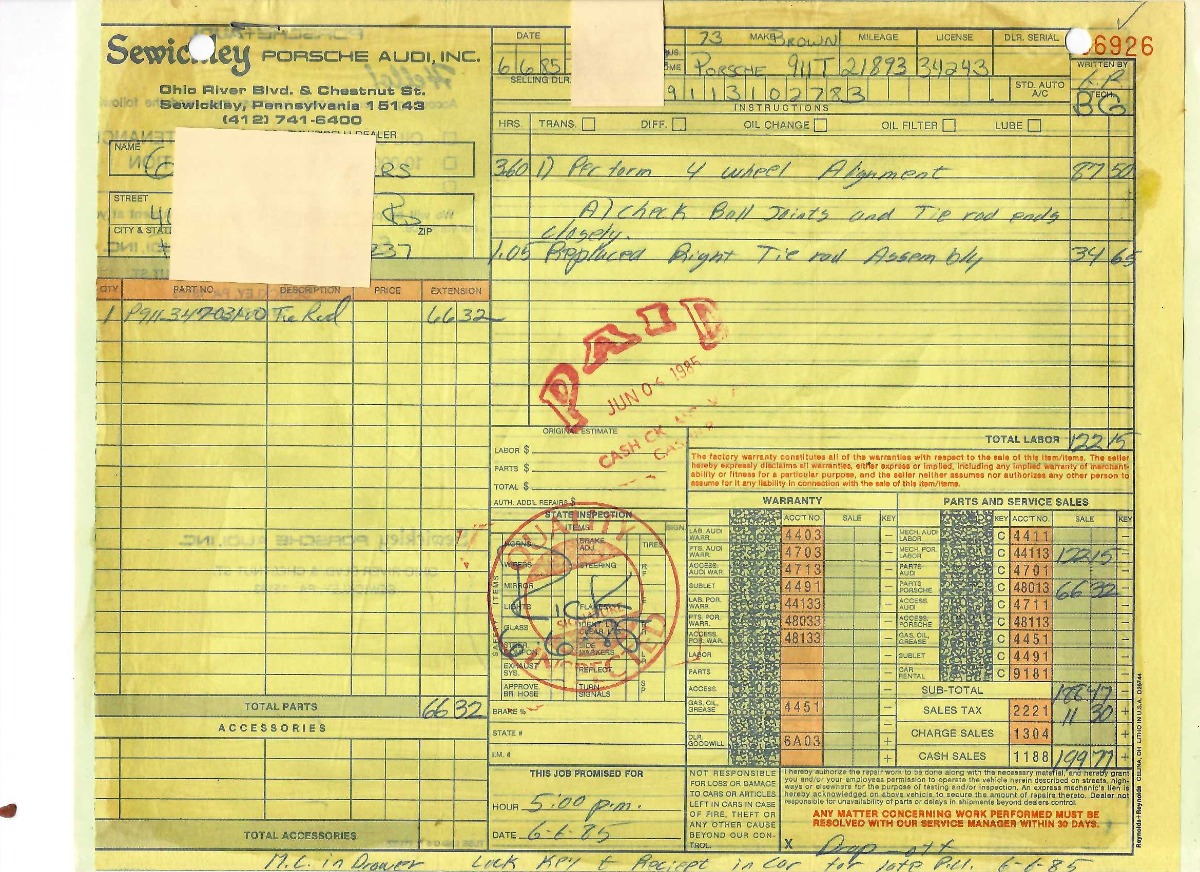 Sewickley PORSCHE AUDI, INC.
Ohio River Blvd. & Chestnut St.
Sewickley, Pennsylvania 15143
(412) 741-6400
DEALER
NAME
RS
STREET
41
Rd
CITY & STATE
ZIP
237
DATE
6 6 85
SELLING DLR.
73 MAKE BROWN MILEAGE LICENSE DLR. SERIAL
PORSCHE 911T 21893 34243
9113102783
STD. AUTO A/C
6926
WRITTEN BY
TECH.
BG
INSTRUCTIONS
HRS. TRANS. DIFF. OIL CHANGE OIL FILTER LUBE
3.60 1) Perform 4 wheel Alignment 87 50
A) check Ball Joints and Tie rod ends
closely.
1.05 Replaced Right Tie rod Assembly 34 65
QTY PART NO. DESCRIPTION PRICE EXTENSION
1 P911-347-031-00 Tie Rod 66 32
PAID
JUN 04 1985
CASH CK
TOTAL LABOR 122 15
ORIGINAL ESTIMATE
LABOR $
PARTS $
TOTAL $
AUTH. ADD'L REPAIRS $
The factory warranty constitutes all of the warranties with respect to the sale of this item/items. The seller
hereby expressly disclaims all warranties, either express or implied, including any implied warranty of merchant-
ability or fitness for a particular purpose, and the seller neither assumes nor authorizes any other person to
assume for it any liability in connection with the sale of this item/items.
STATE INSPECTION
ITEMS SIGN.
SAFETY ITEMS
HORNS BRAKE ADJ. TIRES
WIPERS STEERING
MIRROR
LIGHTS
GLASS
EXHAUST SYS. REFLECT.
APPROVE BR. HOSE TURN SIGNALS
QUALITY
INSPECTED
6-6-85
BRAKE %
STATE #
I.M. #
WARRANTY
ACC'T NO. SALE KEY
LAB. AUDI WARR. 4403 –
PTS. AUDI WARR. 4703 –
ACCESS. AUDI WAR. 4713 –
SUBLET 4491 –
LAB. POR. WARR. 44133 –
PTS. POR. WARR. 48033 –
ACCESS. POR. WAR. 48133 –
LABOR –
PARTS –
ACCESS. –
GAS, OIL, GREASE 4451 –
DLR. GOODWILL 6A03 +
+
PARTS AND SERVICE SALES
KEY ACC'T NO. SALE KEY
MECH. AUDI LABOR C 4411 –
MECH. POR. LABOR C 44113 122 15 –
PARTS AUDI C 4701 –
PARTS PORSCHE C 48013 66 32 –
ACCESS. AUDI C 4711 –
ACCESS. PORSCHE C 48113 –
GAS, OIL, GREASE C 4451 –
SUBLET C 4491 –
CAR RENTAL C 9181 –
SUB-TOTAL 188 47
SALES TAX 2221 11 30 +
CHARGE SALES 1304 +
CASH SALES 1188 199 77 +
TOTAL PARTS 66 32
ACCESSORIES
TOTAL ACCESSORIES
THIS JOB PROMISED FOR
HOUR 5:00 p.m.
DATE 6-6-85
NOT RESPONSIBLE
FOR LOSS OR DAMAGE
TO CARS OR ARTICLES
LEFT IN CARS IN CASE
OF FIRE, THEFT OR
ANY OTHER CAUSE
BEYOND OUR CON-
TROL.
I hereby authorize the repair work to be done along with the necessary material, and hereby grant
you and/or your employees permission to operate the vehicle herein described on streets, high-
ways or elsewhere for the purpose of testing and/or inspection. An express mechanic's lien is
hereby acknowledged on above vehicle to secure the amount of repairs thereto. Dealer not
responsible for unavailability of parts or delays in shipments beyond dealers control.
ANY MATTER CONCERNING WORK PERFORMED MUST BE
RESOLVED WITH OUR SERVICE MANAGER WITHIN 30 DAYS.
X Drop-off
M.C. in Drawer Lock Key & Reciept in Car for late P.U. 6-6-85
Reynolds+Reynolds CELINA, OH LITHO IN U.S.A.